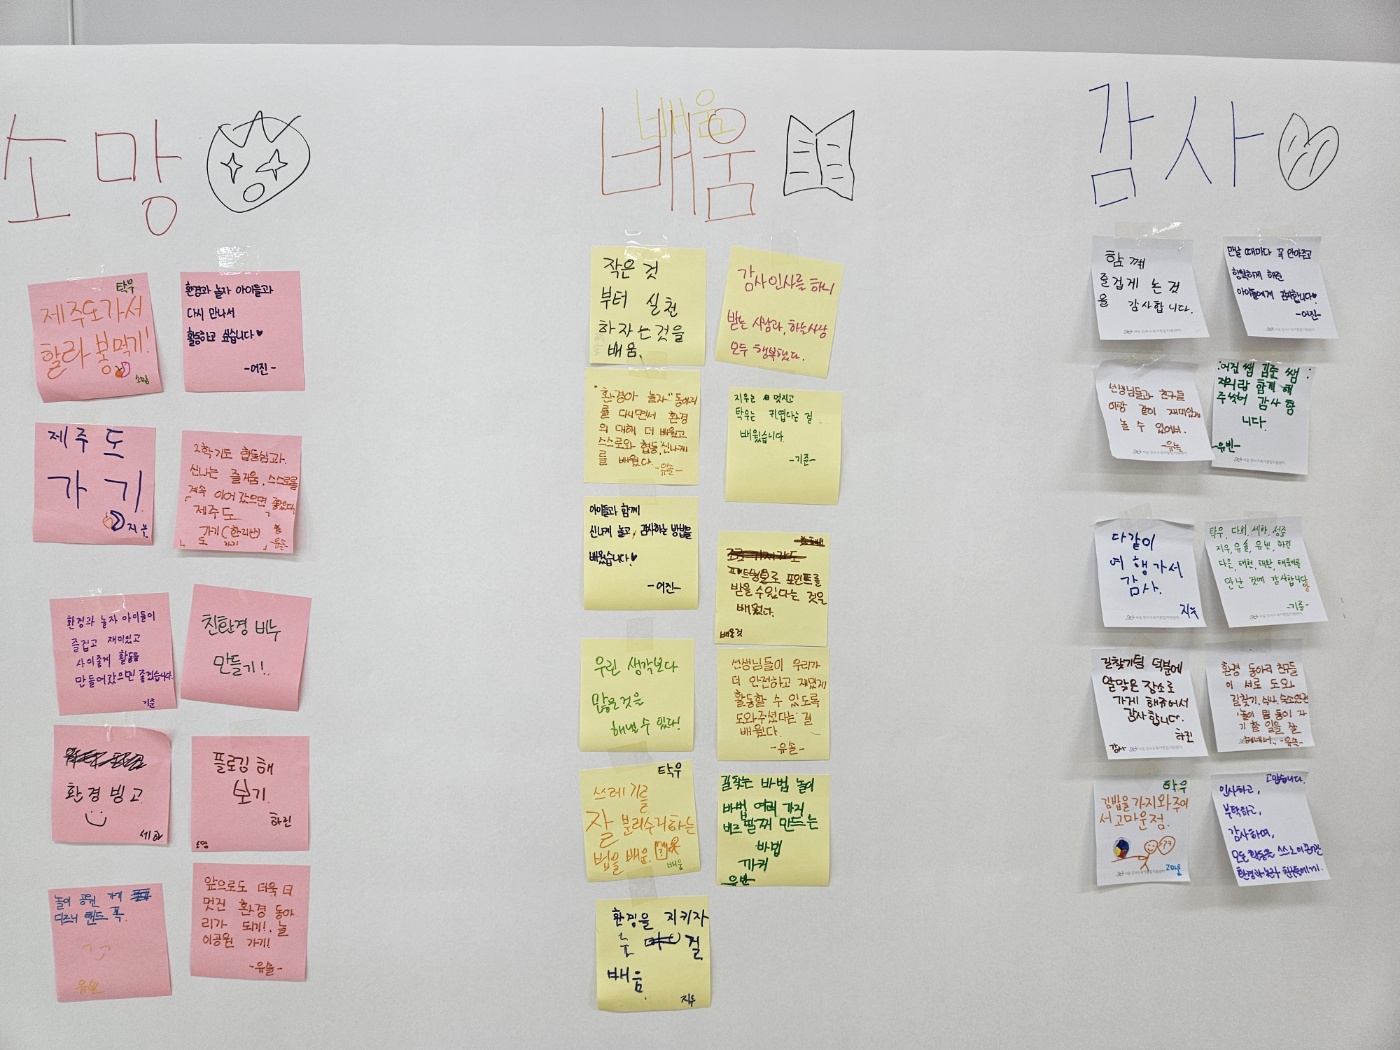 소망
탁우
제주도가서
할라봉먹기!
소망
환경과 놀자 아이들과
다시 만나서
활동하고 싶습니다♥
-여진-
제주도
가기
지우
2학기도 협동심과,
신나는 즐거움, 스스로를
계속 이어갔으면 좋겠다
제주도
가기(한라산)
도 가기
-유솔-
환경과 놀자 아이들이
즐겁고 재미있고
사이좋게 활동을
만들어갔으면 좋겠습니다.
기준
친환경 비누
만들기!
환경 빙고
세화
플로깅 해
보기
하진
소망
놀이 공원
디즈니 랜드 꼭.
앞으로도 더욱 더
멋진 환경 동아
리가 되기!, 놀
이공원 가기!
-유솔-
배움
배움
작은 것
부터 실천
하자는것을
배움.
감사인사를 하니
받는 사람과, 하는사람
모두 행복했다.
"환경아 놀자" 동아리
를 다니면서 환경
의 대해 더 배웠고
스스로와 협동, 신나게
를 배웠다.
-유솔-
지우는 멋지고
탁우는 귀엽다는 걸
배웠습니다
-기준-
아이들과 함께
신나게 놀고, 감사하는 방법을
배웠습니다♥
-여진-
포인트를
받을 수있다는 것을
배웠다.
배운것
우린 생각보다
많은것을
해낼 수 있다!
선생님들이 우리가
더 안전하고 재밌게
활동할 수 있도록
도와주셨다는 걸
배웠다.
-유솔-
탁우
쓰레기를
잘 분리수거하는
법을 배움.
배움
길찾는 방법 놀이
방법 여러 가지
비즈 팔찌 만드는
방법
유빈
환경을 지키자
는 걸
배움.
지우
감사
함께
즐겁게 논것
을 감사합니다.
만날 때마다 꼭 안아주고
행복하게 해준
아이들에게 감사합니다♥
-여진-
선생님들과 친구들
이랑 같이 재미있게
놀 수 있어서.
-유솔-
여진 쌤 기준 쌤
저희랑 함께 해
주셔서 감사 합
니다.
-유빈-
다같이
여행가서
감사.
지우
탁우, 다희, 세화, 성준
지우, 유솔, 유빈, 하진
만난 것에 감사합니다
-기준-
길찾기팀 덕분에
알맞은 장소로
가게 해주어서
감사합니다.
하진
감사
환경 동아리 친구들
이 서로 도와
길찾기, 식사, 숙소안전
놀이 팀 등이 자
기 할 일을 잘
해내서. -유솔-
탁우
김밥을 가지와주어
서 고마운점.
고마움
고맙습니다.
인사하고,
부탁하고,
감사하며,
모든 활동을 스스로 이루어간
환경과놀자 친구들에게.